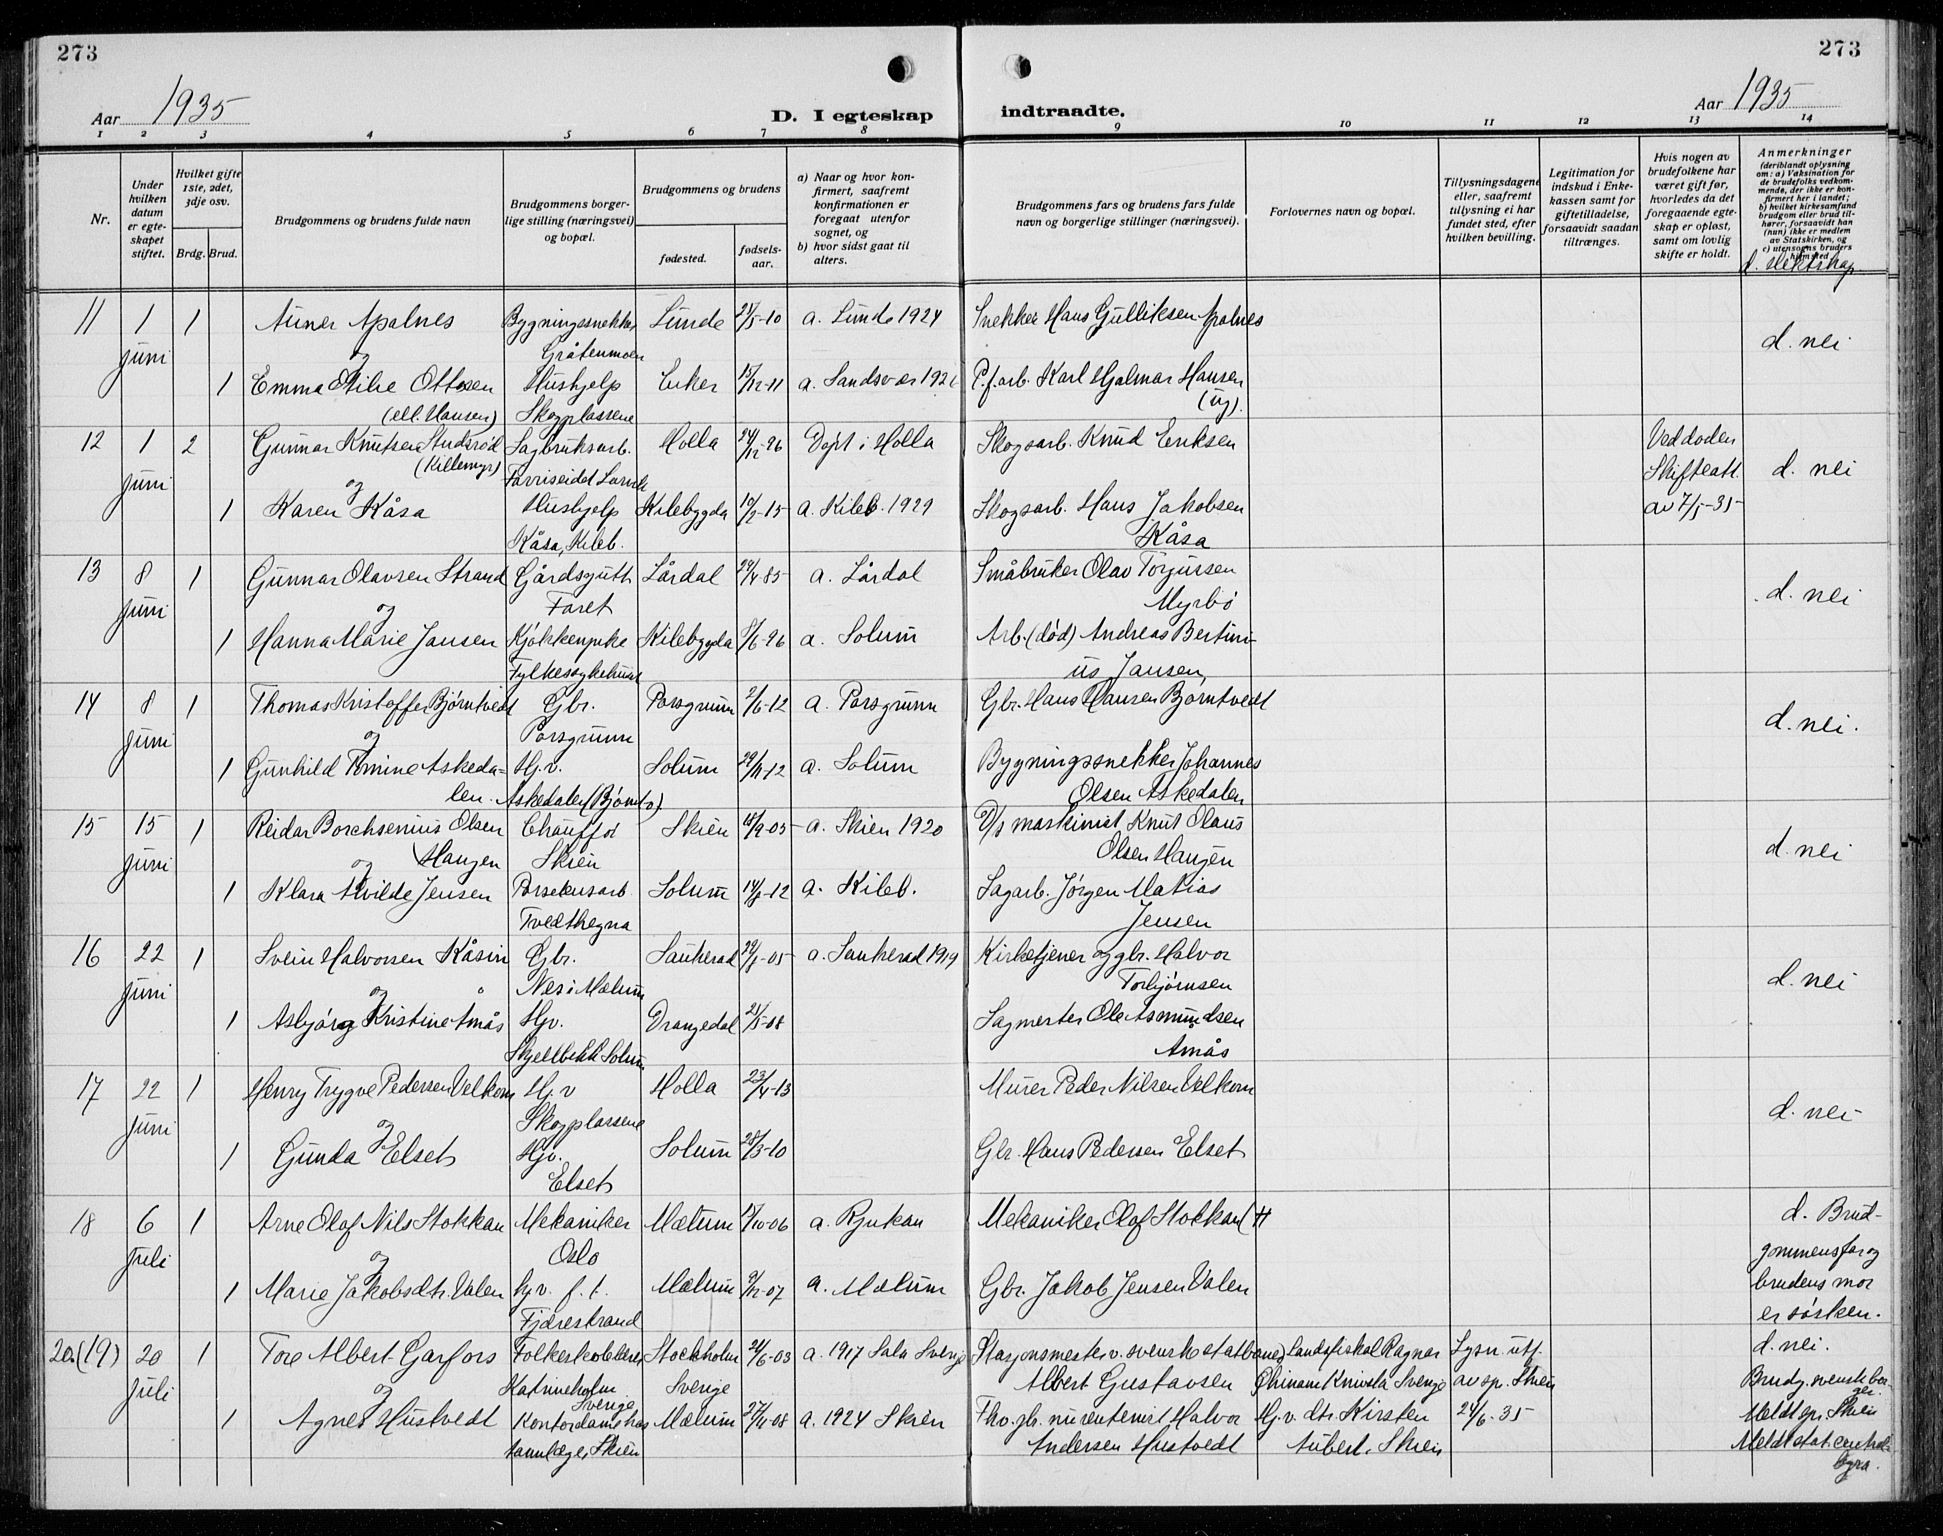 273
273
Aar 1935
D. I egteskap indtraadte.
Aar 1935
1 2 3 4 5 6 7 8 9 10 11 12 13 14
Nr.
Under hvilken datum er egteskapet stiftet.
Hvilket gifte 1ste, 2det, 3dje osv.
Brdg. Brud.
Brudgommens og brudens fulde navn
Brudgommens borgerlige stilling (næringsvei) og bopæl.
Brudgommens og brudens
fødested.
fødselsaar.
a) Naar og hvor konfirmert, saafremt konfirmationen er foregaat utenfor sognet, og
b) hvor sidst gaat til alters.
Brudgommens fars og brudens fars fulde navn og borgerlige stillinger (næringsvei).
Forlovernes navn og bopæl.
Tillysningsdagene eller, saafremt tillysning ei har fundet sted, efter hvilken bevilling.
Legitimation for indskud i Enkekassen samt for giftetilladelse, forsaavidt saadan tiltrænges.
Hvis nogen av brudefolkene har været gift før, hvorledes da det foregaaende egteskap er opløst, samt om lovlig skifte er holdt.
Anmerkninger (deriblandt oplysning om: a) Vaksination for de brudefolks vedkommende, der ikke er konfirmert her i landet; b) hvilket kirkesamfund brudgom eller brud tilhører, forsaavidt han (hun) ikke er medlem av Statskirken, og c) utensogns bruders hjemsted
d. slektskap
11 1 1 Auner Apalnes Bygningssnekker Lunde 21/5-10 a. Lunde 1924 Snekker Hans Gulliksen Apalnes
juni og Gråtenmoen d. nei
1 Emma Otilie Ottosen Hushjelp Eiker 15/12-11 a. Sandsvær P.f.arb. Karl Hjalmar Hansen
(ell. Hansen) Skogplassene (ug).
12 1 2 Gunnar Knutsen Studsrød Sagbruksarb. Holla 24/12-96 Døpt i Holla Skogsarb. Knud Eriksen Ved døden
juni (Killemyr) Farriseidet Larvik Skifteatt. d. nei
og
1 Karen Kåsa Hushjelp Kilebygda 10/2-15 a. Kileb. 1929 Skogsarb. Hans Jakobsen av 7/5-35
Kåsa, Kileb. Kåsa
13 8 1 Gunnar Olavsen Strand Gårdsgutt Lårdal 29/4 85 a. Lårdal Småbruker Olav Torjussen
juni og Faret Myrbø d. nei
1 Hanna Marie Jansen Kjøkkenpike Kilebygda /6-96 a. Solum Arb. (død) Andreas Bertin-
Fylkessykehuset us Jansen
14 8 1 Thomas Kristoffer Bjørntvedt Gbr. Porsgrunn 2/6-12 a. Porsgrunn Gbr. Hans Hansen Bjørntvedt
juni og Porsgrunn d. nei.
1 Gunhild Tomine Askeda- Hj.v. Solum 29/11-12 a. Solum Bygningssnekker Johannes
len. Askedalen (Bjørntv.) Olsen Askedalen
15 15 1 Reidar Borchsenius Olsen Chauffør Skien 14/9-05 a. Skien 1920 D/s maskinist Knut Olaus
juni og Haugen Skien Olsen Haugen d. nei
1 Klara Alvilde Jensen Porselensarb. Solum 14/8-12 a. Kileb. Sagarb. Jørgen Matias
Tvedthegna Jensen
16 22 1 Svein Halvorsen Kåsin Gbr. Sauherad 29/8-05 a. Sauherad 1919 Kirketjener og gbr. Halvor
juni og Nes i Mælum Torbjørnsen d. nei
1 Asbjørg Kristine Åmås Hjv. Drangedal 21/5-08 Sagmester Ole Asmundsen
Skjelbekk Solum Åmås
17 22 1 Henry Trygve Pedersen Velkom Hj.v Holla 23/4-13 Murer Peder Nilsen Velkom
juni og Skogplassene d. nei
1 Gunda Elset Hjv. Solum 28/3-10 Gbr. Hans Pedersen Elset
Elset
18 6 1 Arne Olaf Nils Stokkan Mekaniker Mælum /10-06 a. Rjukan Mekaniker Olof Stokkan d. Brud-
juli og Oslo gommens far og
1 Marie Jakobsdtr. Valen hjv. f. t. Mælum 9/12-07 a. Mælum Gbr. Jakob Jensen Valen brudens mor
Fjærestrand er søsken.
20.(19) 20 1 Tore Albert Garfors Folkeskolelærer Stockholm 24/6-03 a. 1917 Sala Sverige Stasjonsmester v. svenske statbaner Landsfiskal Ragnar Lysn. utf. d. nei.
juli og Katrineholm Sverige Sverige Albert Gustavsen Knivsta Sverige av sp. Skien Brudg. svensk borger.
1 Agnes Hustvedt Kontordame hos Mælum 27/4-08 a. 1924 Skien Fhv. gb. nu rentenist Halvor Hj.v. dtr. Kirsten 24/6-35 Meldt spr. Skien
tannlæge, Skien Andersen Hustvedt Aubert, Skien Meldt stat. central-
byrå.